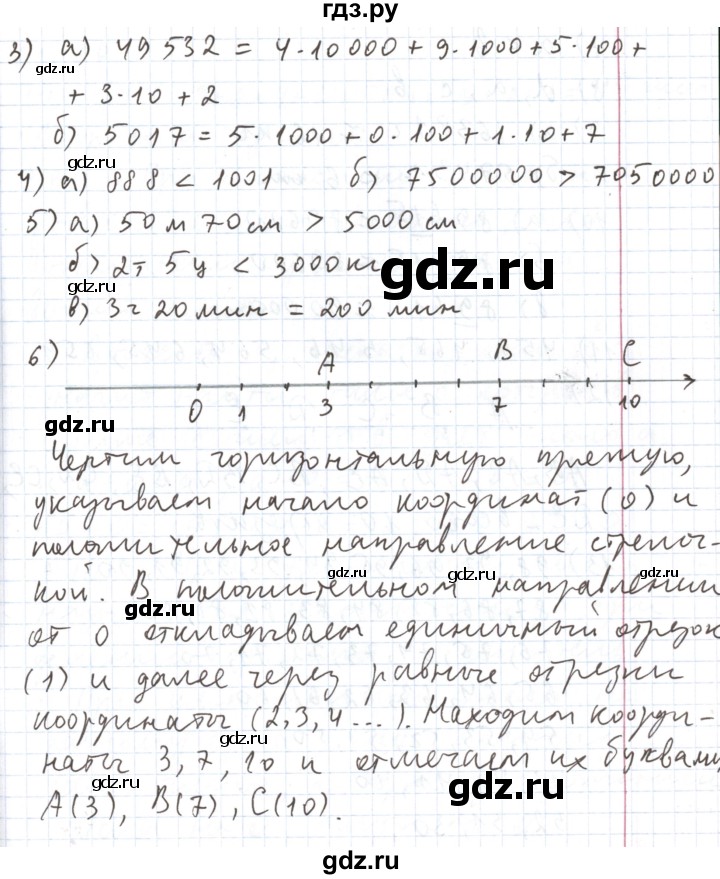 гдз.ру
3) а) 49 532 = 4·10 000 + 9·1000 + 5·100 +
gdz.ru
+ 3·10 + 2
б) 5017 = 5·1000 + 0·100 + 1·10 + 7
gdz.ru gdz.ru
4) а) 888 < 1001 б) 7500000 > 7050000
5) а) 50 м 70 см > 5000 см
б) 2т 5ц < 3000 кг
gdz.ru
gdz.ru
в) 3ч 20 мин = 200 мин
6)
А В С
0 1 3 7 10
gdz.ru gdz.ru
Чертим горизонтальную прямую,
указываем начало координат (0) и
положительное направление стрелоч-
кой. В положительном направлении
gdz.ru gdz.ru
gdz.ru
от 0 откладываем единичный отрезок
(1) и далее через равные отрезки
gdz.ru gdz.ru
координаты (2,3,4...). Находим коорди-
gdz.ru
наты 3, 7, 10 и отмечаем их буквами
gdz.ru gdz.ru
А(3), В(7), С(10).
gdz.ru